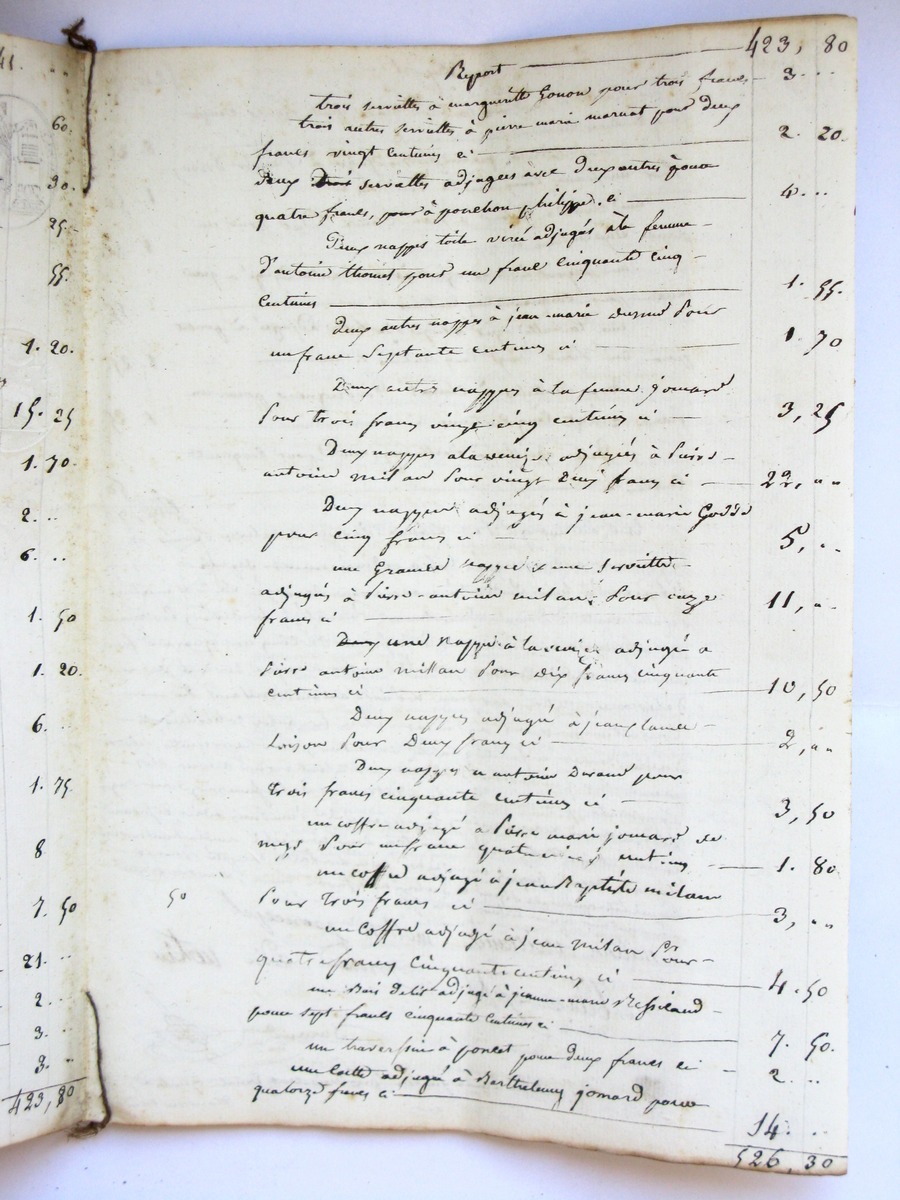 41. ..
60.
30.
25.
55.
1. 20.
15. 25
1. 70.
2. ..
6. ..
1. 50
1. 20.
6. ..
1. 75.
8
7. 50
21. ..
2. ..
3. ..
3. ..
423, 80
Report 423, 80
trois serviettes à margueritte Gonon pour trois francs 3. ..
trois autres serviettes à pierre marie marnat pour deux
francs vingt centimes ci 2. 20.
deux trois serviettes adjugées avec deux autres pour
quatre francs, pour à ponchon philippe. ci 4. ..
Deux nappes toile adjugés à la femme
d'antoine thomet pour un franc cinquante cinq
centimes 1. 55.
deux autres nappes à jean marie pour
un franc septante centimes ci 1. 70
Deux autres nappes à la femme jomard
pour trois francs vingt cinq centimes ci 3, 25
Deux nappes a la venise adjugés à pierre
antoine milan pour vingt deux francs ci 22, ..
Deux nappes adjugés à jean-marie
pour cinq francs ci 5, ..
une grande nappe & une serviette
adjugés à pierre-antoine milan pour onze
francs ci 11, ..
Deux une nappe à la venise adjugé a
pierre antoine millan pour dix francs cinquante
centimes ci 10, 50
Deux nappes adjugé à jean claude
loison pour Deux francs ci 2, ..
Deux nappes a antoine Durand pour
trois francs cinquante centimes ci 3, 50
un coffre adjugé a pierre marie jomard de
pour un franc quatre vingt centimes 1. 80
un coffre adjugé à jean Baptiste milan
50 pour trois francs ci 3, ..
un coffre adjugé à jean milan pour
quatre francs cinquante centimes ci 4. 50
un Bois Delit adjugé à jeanne-marie Ressicaud
pour sept francs cinquante centimes ci 7. 50.
un traversin à poncet pour deux francs ci 2. ..
une adjugé à Barthelemy jomard pour
quatorze francs ci 14. ..
526, 30